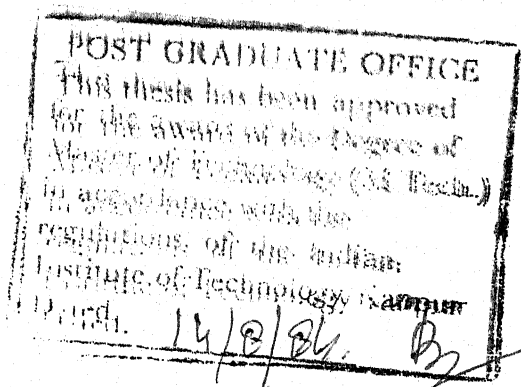 POST GRADUATE OFFICE
This thesis has been approved
for the award of the Degree of
Master of Technology (M. Tech.)
in accordance with the
regulations of the Indian
Institute of Technology Kanpur
Dated. 14/8/84.